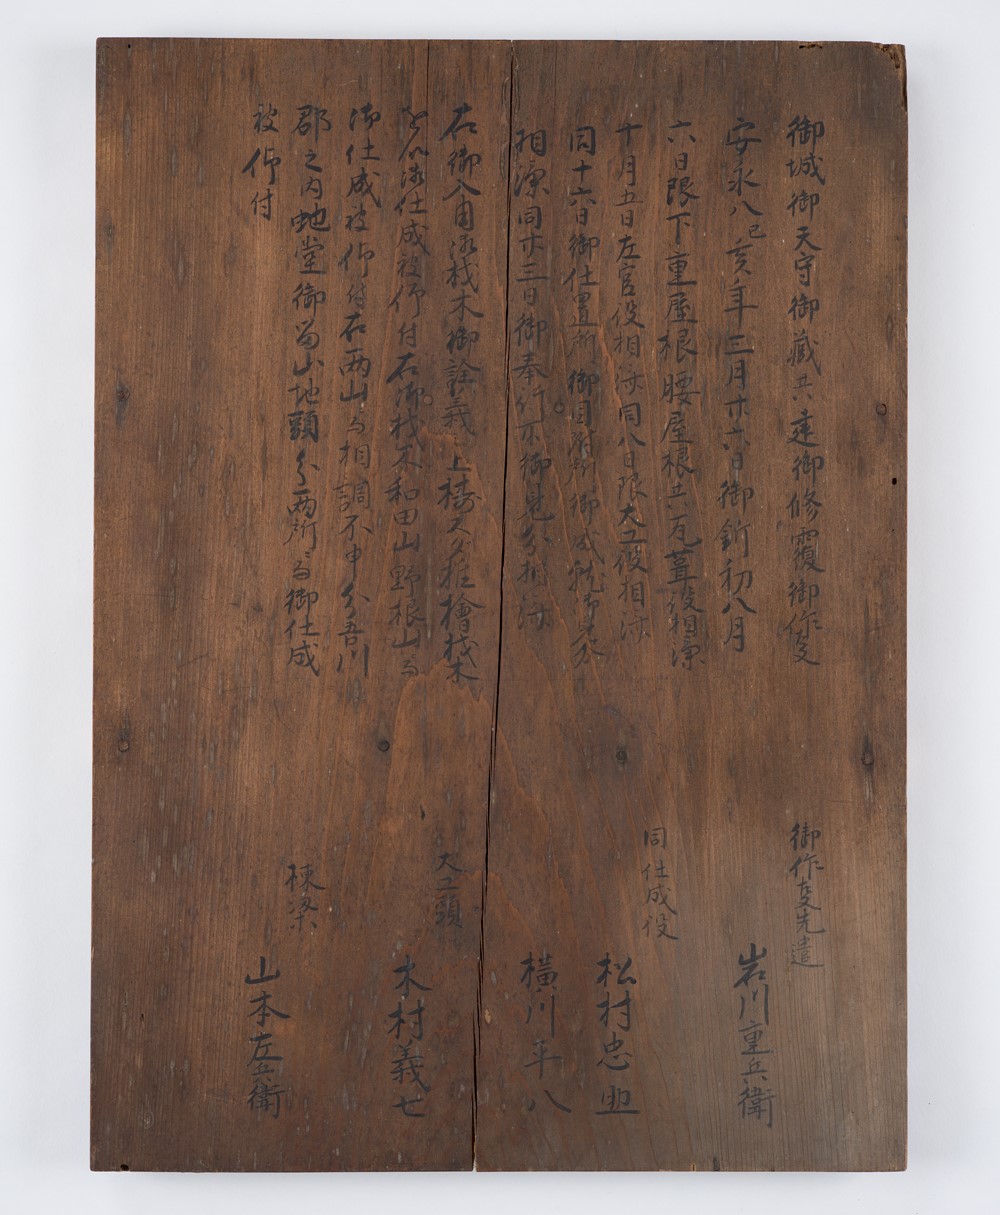 御城御天守御蔵共建御修覆御作夏
安永八己亥年三月廿六日御釿初八月
六日限下重屋根腰屋根共瓦葺役相済
十月五日左官役相済同八日限大工役相済
同十六日御仕置所御目附所御成就御見分
相済同廿三日御奉行不御見分相済
右御入用之材木御詮義之上檜材木
御仕成被仰付右御材木和田山野根山
御仕成被仰付右両山ニ而相調不申分吾川
郡之内蛇堂御留山地頭分両所ニ而御仕成
被仰付
御作夏先遣
岩川重兵衛
同仕成役
松村忠
横川平八
大工頭
木村義七
棟梁
山本左兵衛